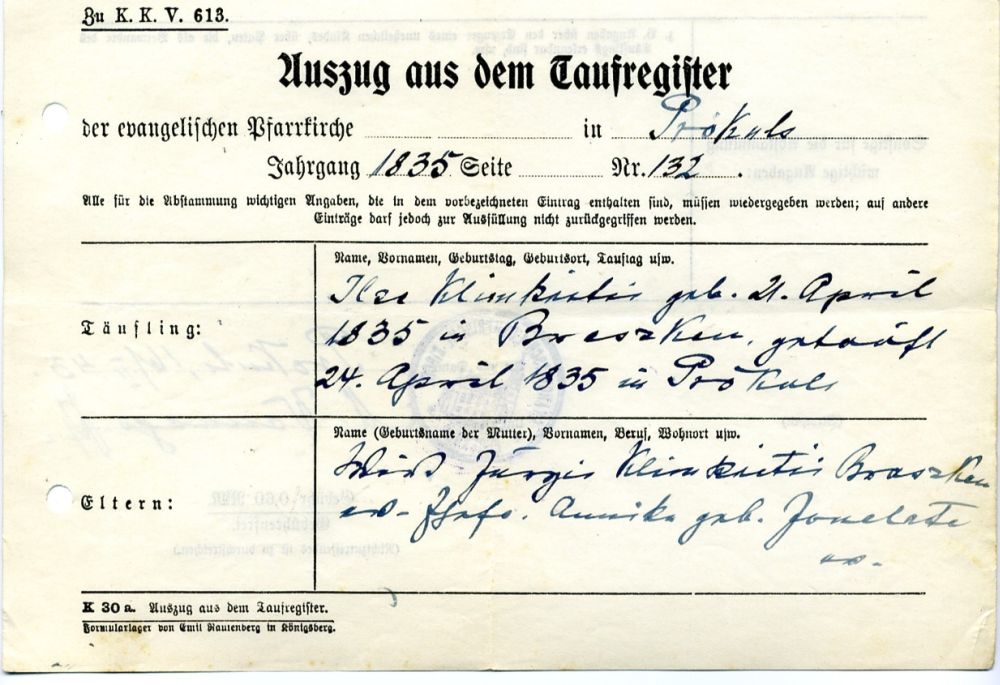 Zu K. K. V. 613.
Auszug aus dem Taufregister
der evangelischen Pfarrkirche in Prökuls
Jahrgang 1835 Seite Nr. 132.
Alle für die Abstammung wichtigen Angaben, die in dem vorbezeichneten Eintrag enthalten sind, müssen wiedergegeben werden; auf andere
Einträge darf jedoch zur Ausfüllung nicht zurückgegriffen werden.
Täufling:
Name, Vornamen, Geburtstag, Geburtsort, Tauftag usw.
Ilse Klimkeitis geb. 21. April
1835 in Braszken, getauft
24. April 1835 in Prökuls
Eltern:
Name (Geburtsname der Mutter), Vornamen, Beruf, Wohnort usw.
Wirt Jurgis Klimkeitis Braszken
ev. Ehefr. Annika geb. Jonelate
ev.
K 30a. Auszug aus dem Taufregister.
Formularlager von Emil Rautenberg in Königsberg.